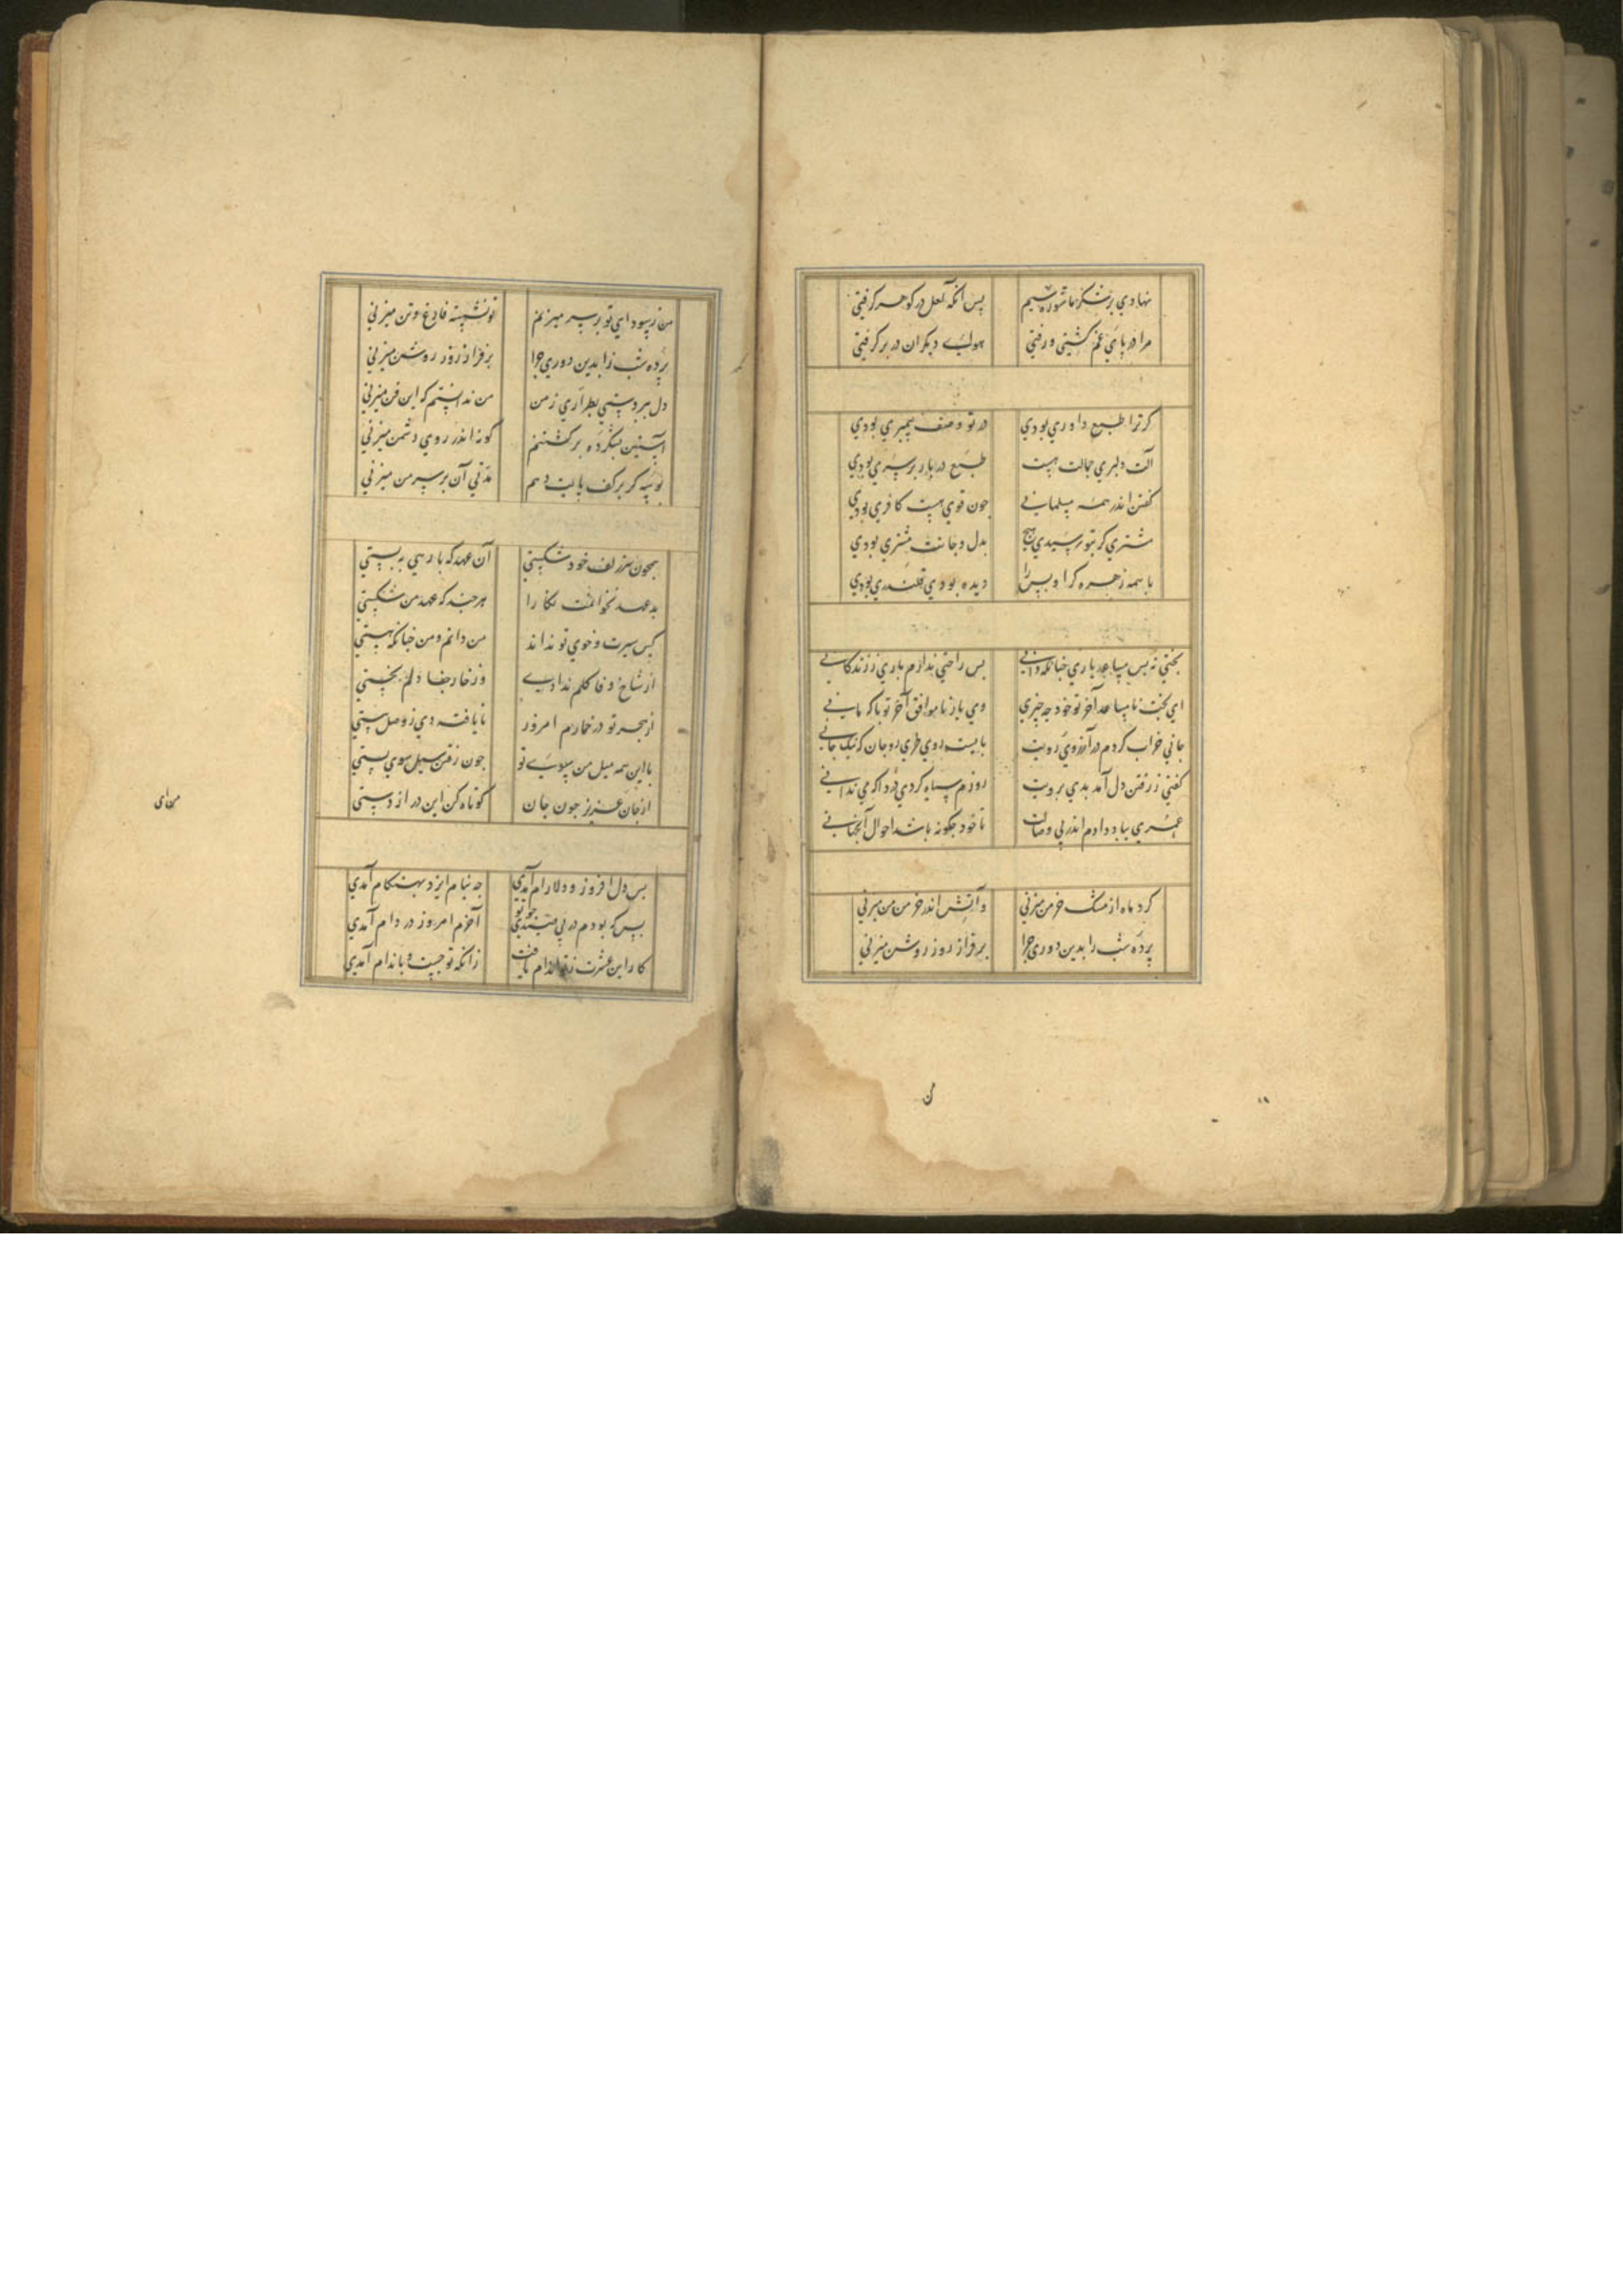 نهادي بر شكر ماشوره سيم پس انكه لعل در كوهر كرفتي
مرا در پاي غم كشتي و رفتي هواي ديكران در بر كرفتي
كر ترا طبع داوري بودي در تو وصف پيمبري بودي
آلت دلبري جمالت هست طبع در بار بر سري بودي
كفتن اندر همه مسلماني چون توي هست كافري بودي
مشتري كر بتو رسيدي هيچ بدل و جانت مشتري بودي
با همه زهره كر او پس را ديده بودي قلندري بودي
بختي نه بس مساعد ياري چنانكه داني بس راحتي ندارم باري ز زندكاني
اي بخت نامساعد آخر تو خود چه چيزي وي يار ناموافق آخر تو با كه ماني
جاني خراب كردم در آرزوي رويت بايست روي طري رو جان كه نيك جاني
كفتي ز رفتن دل آمد بدي برويت روزم سياه كردي درد اكر مي نداني
عمري بباد دادم اندر پي وصالت تا خود چكونه باشد احوال آنجهاني
كرد ماه از مشك خرمن ميزني وآتش اندر خرمن من ميزني
پرده شب را بدين دوري چرا بر فراز روز روشن ميزني
من ز سوداي تو بر سر ميزنم تو نشسته فارغ و تن ميزني
پرده شب را بدين دوري چرا بر فراز روز روشن ميزني
دل ببردستي بطراري ز من من ندانستم كه اين فن ميزني
آستين بشكرده بر كشتنم كونه اندر روي دشمن ميزني
بوسه كر بر كف پايت دهم مدتي آن بر سر من ميزني
همچون سر زلف خود شكستي آن عهد كه با رهي ببستي
بد عهد نخوانمت نكارا هرچند كه عهد من شكستي
كس سيرت و خوي تو نداند من دانم و من چنانكه هستي
از شاخ وفا كلم ندادي وز خار جفا دلم بخستي
از هجر تو در خمارم امروز نايافته دي ز وصل مستي
با اين همه ميل من بسوي تو چون رفتن سيل سوي پستي
از جان عزيز چون جان كوتاه كن اين دراز دستي
بس دل افروز و دلارام آمدي چه بنام ايزد بهنكام آمدي
بس كه بودم در پي چون تويي آخرم امروز در دام آمدي
كار اين عشرت ز تو اندام يافت زانكه تو چست و باندام آمدي